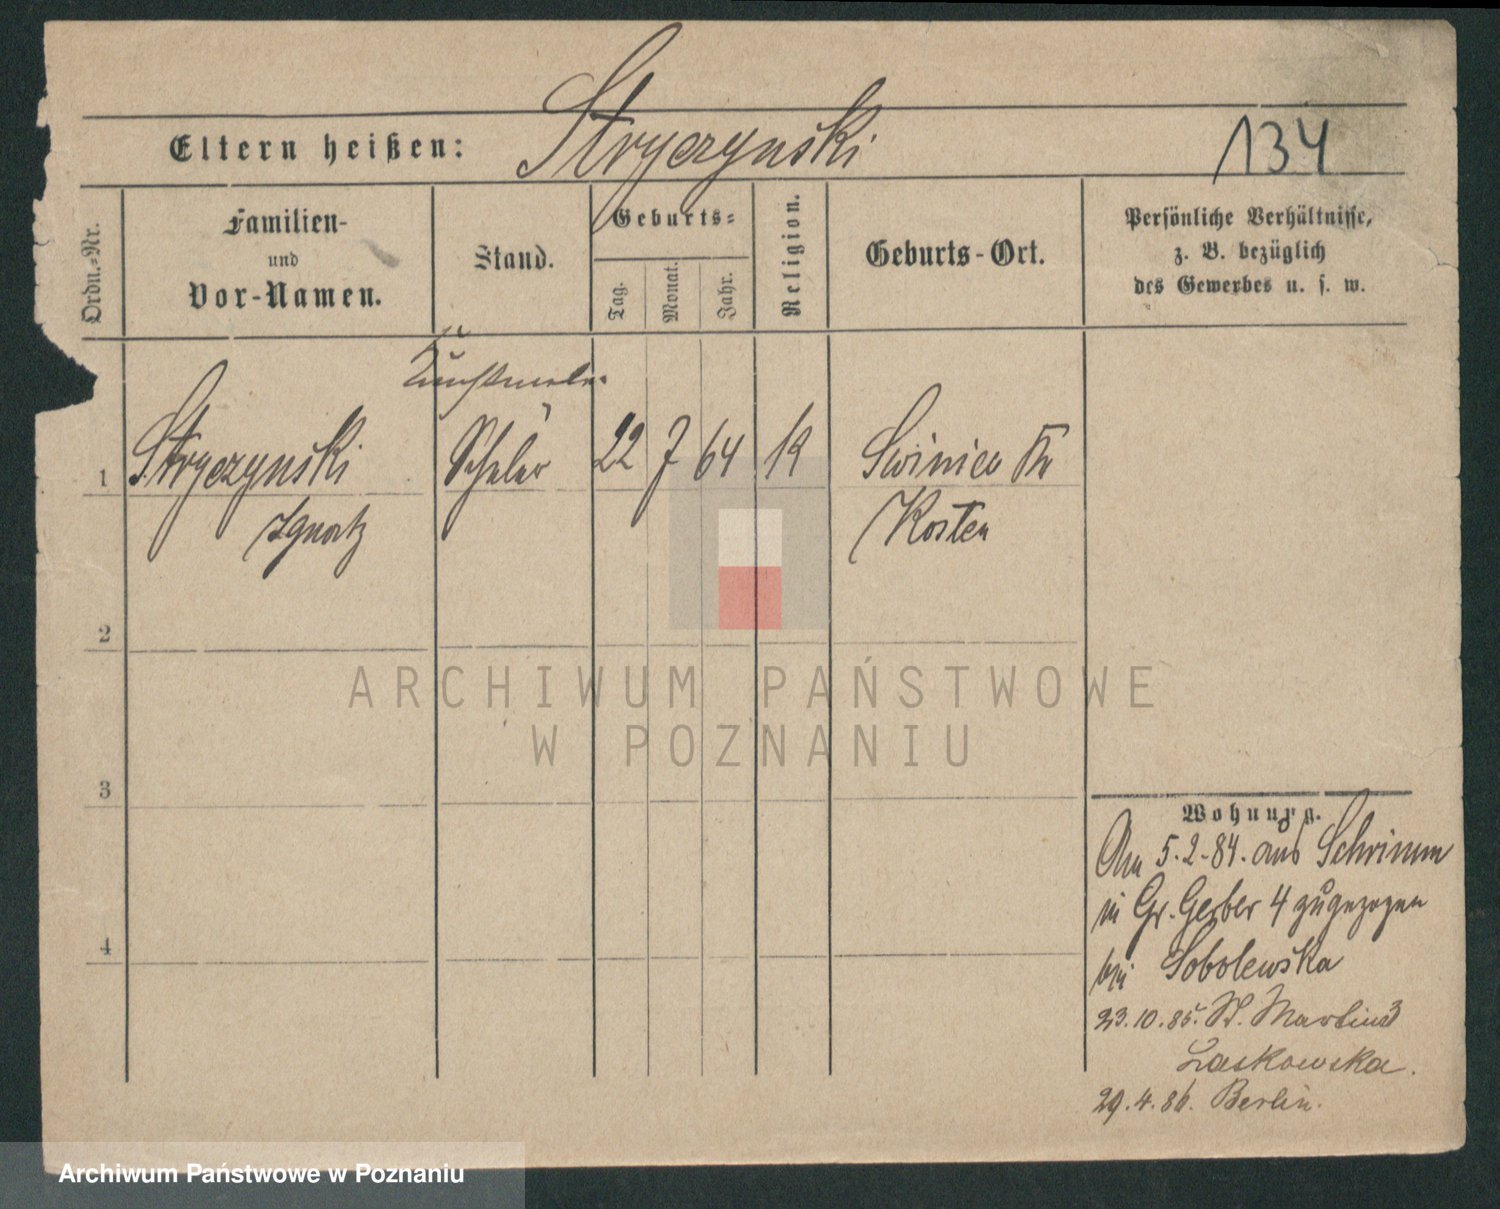 Eltern heißen: Stryczynski 134
Ordn.-Nr.
Familien-
und
Vor-Namen.
Stand.
Geburts-
Tag.
Monat.
Jahr.
Religion.
Geburts-Ort.
Persönliche Verhältnisse,
z. B. bezüglich
des Gewerbes u. s. w.
1 Stryczynski Schüler 22 7 64 K Swiniec Kr
Ignatz Kosten
2
3
4
Wohnung.
Am 5.2.84. aus Schrimm
in Gr. Gerber 4 zugezogen
bei Sobolewska
23.10.85. St. Martin 3
Laskowska.
29.4.86. Berlin.
ARCHIWUM PAŃSTWOWE
W POZNANIU
Archiwum Państwowe w Poznaniu